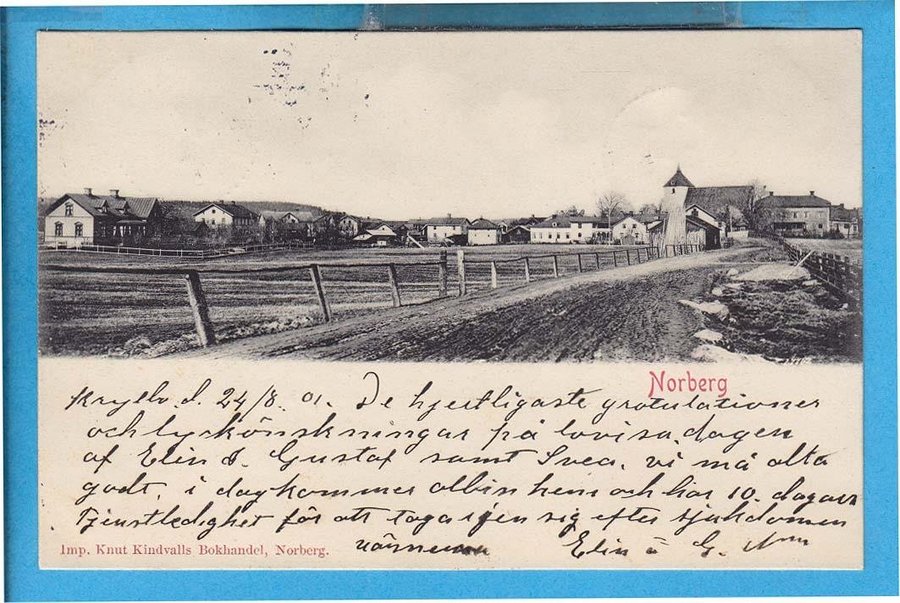 Norberg
Krylbo d. 24/8. 01. De hjertligaste gratulationer
och lyckönskningar på lovisadagen
af Elin o. Gustaf samt Svea. vi må alla
godt, i dag kommer albin hem och har 10. dagars
Tjenstledighet för att taga igen sig efter sjukdomen
Elin å G.
Imp. Knut Kindvalls Bokhandel, Norberg.